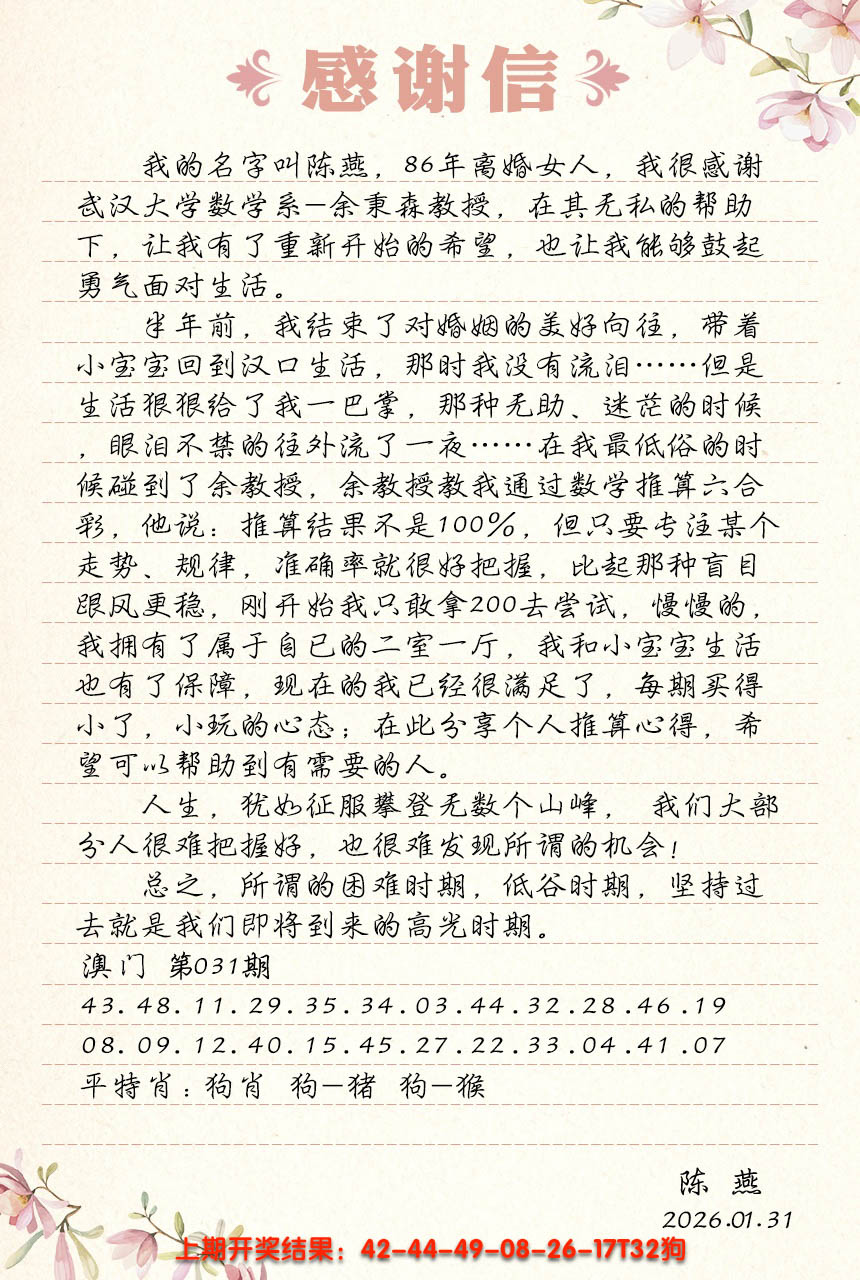 感谢信
我的名字叫陈燕，86年离婚女人，我很感谢
武汉大学数学系—余秉森教授，在其无私的帮助
下，让我有了重新开始的希望，也让我能够鼓起
勇气面对生活。
半年前，我结束了对婚姻的美好向往，带着
小宝宝回到汉口生活，那时我没有流泪……但是
生活狠狠给了我一巴掌，那种无助、迷茫的时候
，眼泪不禁的往外流了一夜……在我最低俗的时
候碰到了余教授，余教授教我通过数学推算六合
彩，他说：推算结果不是100%，但只要专注某个
走势、规律，准确率就很好把握，比起那种盲目
跟风更稳，刚开始我只敢拿200去尝试，慢慢的，
我拥有了属于自己的二室一厅，我和小宝宝生活
也有了保障，现在的我已经很满足了，每期买得
小了，小玩的心态；在此分享个人推算心得，希
望可以帮助到有需要的人。
人生，犹如征服攀登无数个山峰， 我们大部
分人很难把握好，也很难发现所谓的机会！
总之，所谓的困难时期，低谷时期，坚持过
去就是我们即将到来的高光时期。
澳门 第031期
43.48.11.29.35.34.03.44.32.28.46.19
08.09.12.40.15.45.27.22.33.04.41.07
平特肖：狗肖 狗—猪 狗—猴
陈 燕
2026.01.31
上期开奖结果：42-44-49-08-26-17T32狗